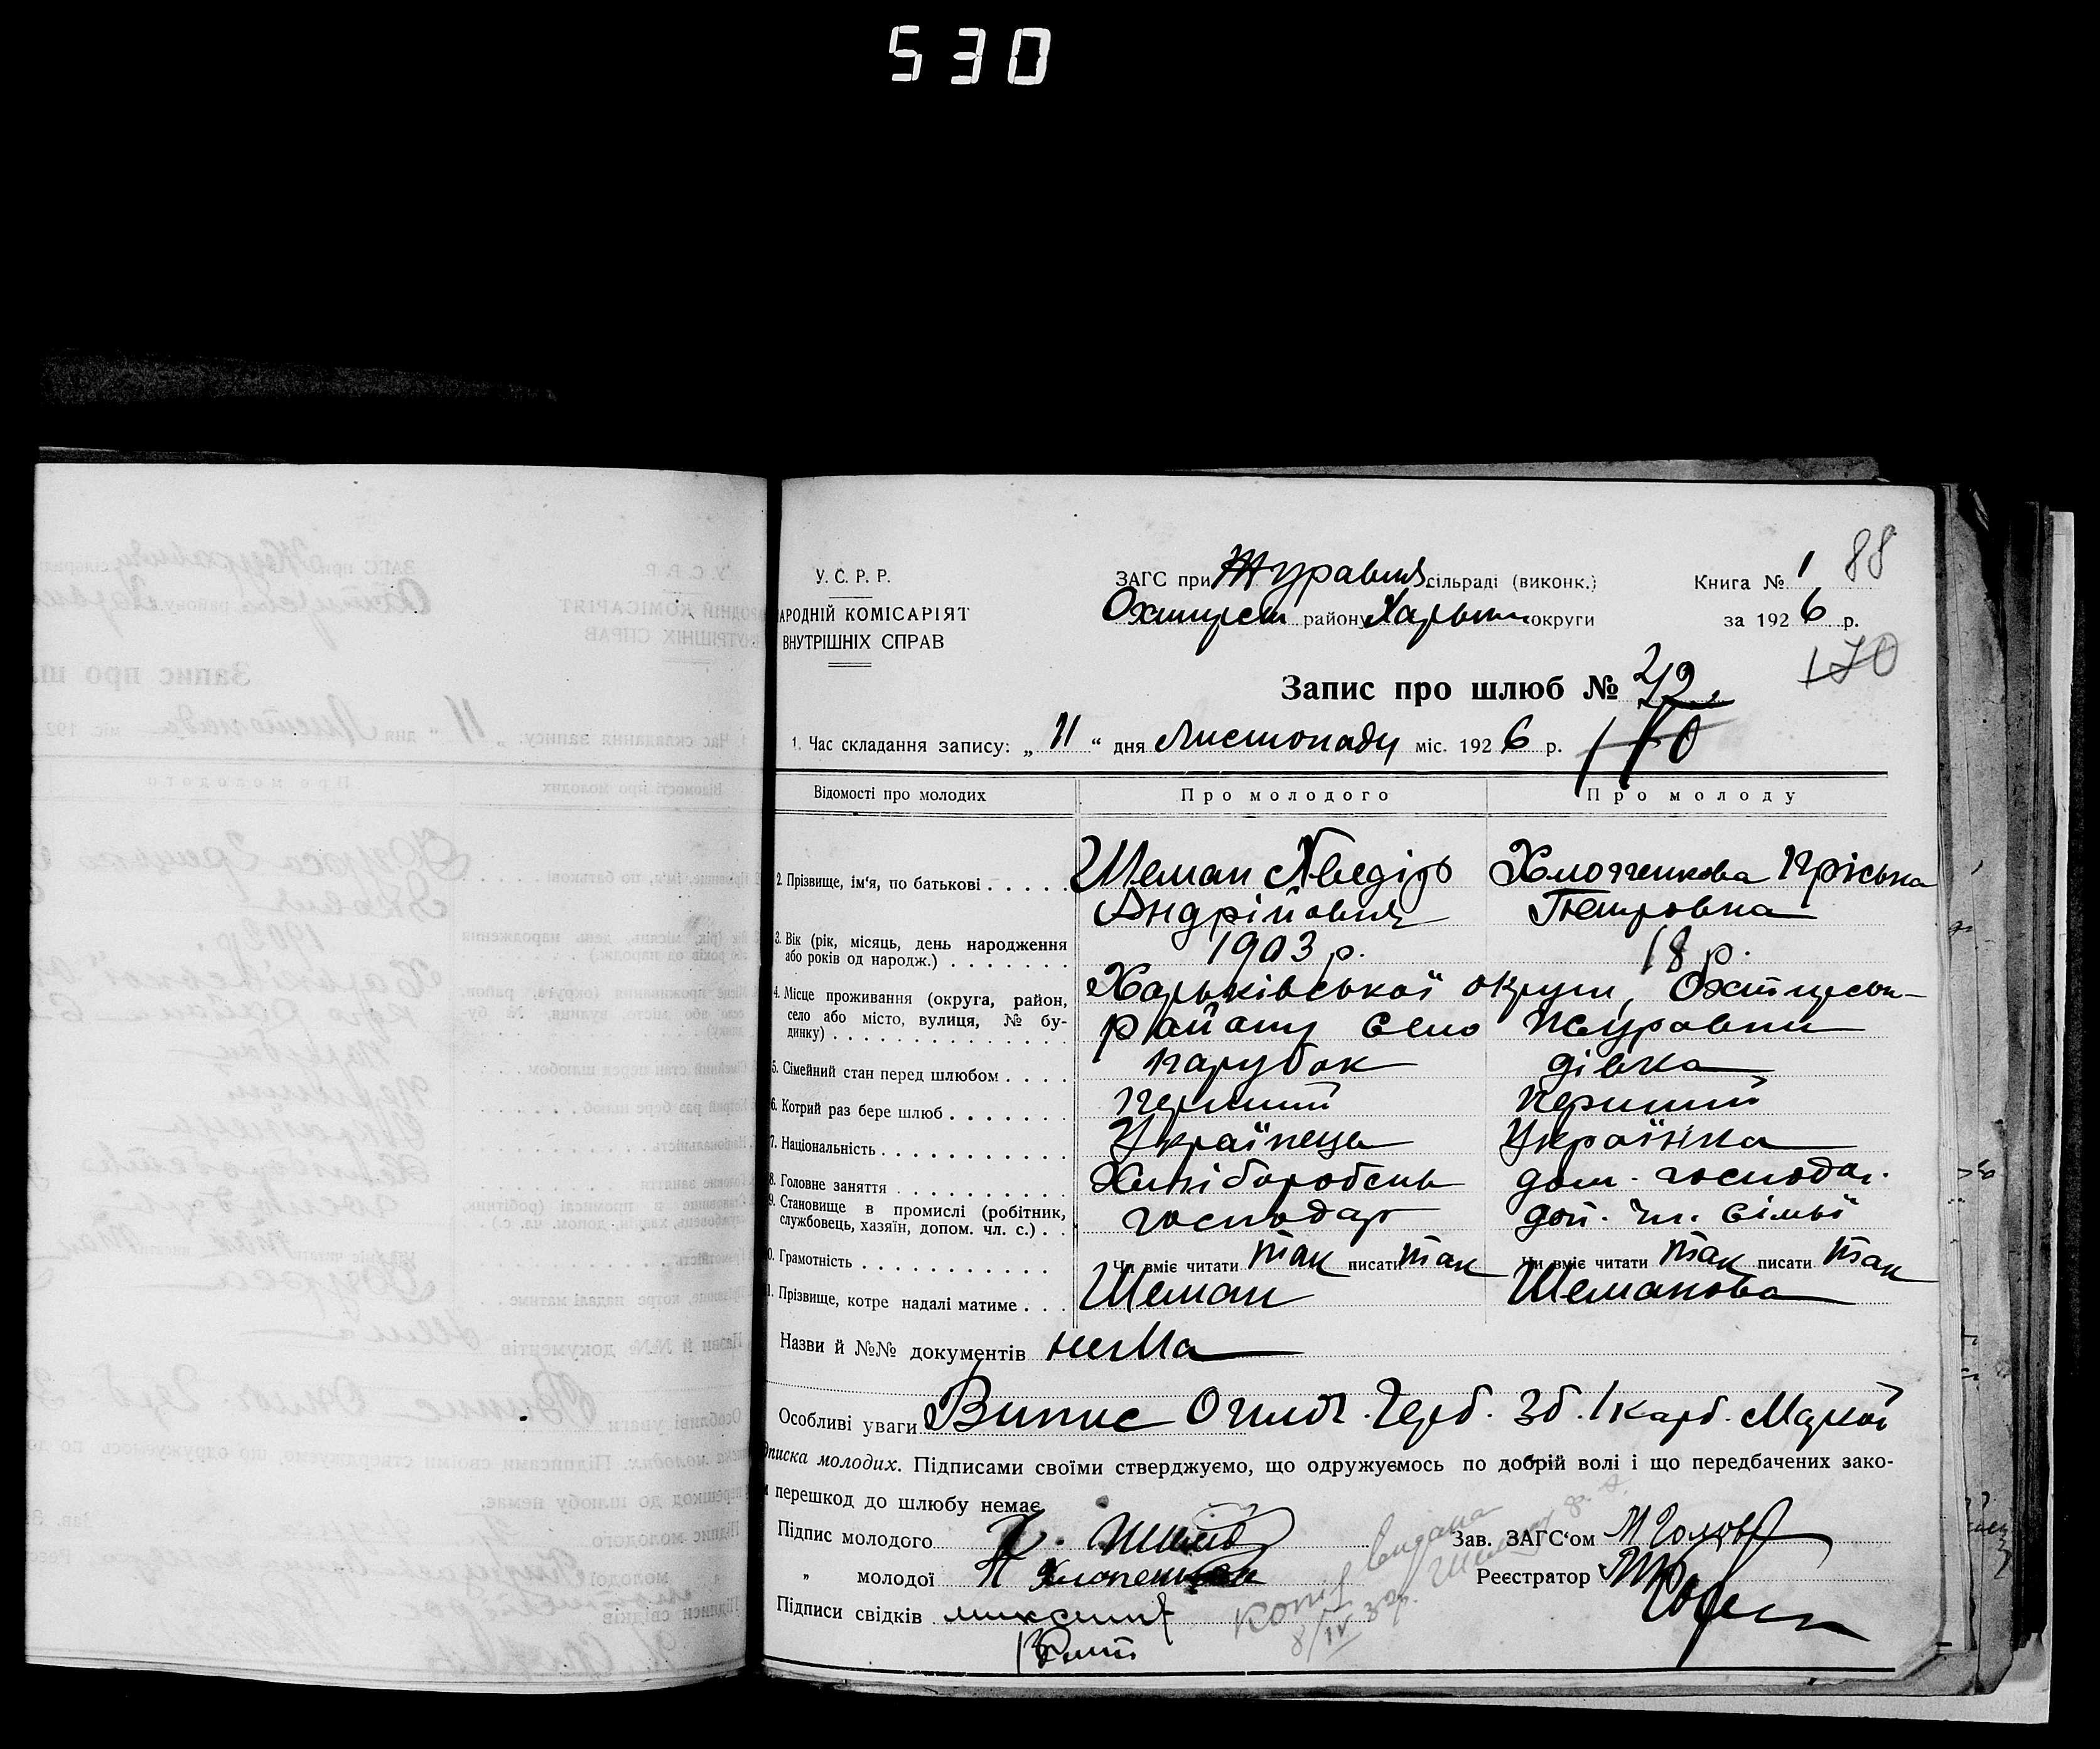 530
88
У. С. Р. Р.
АРОДНІЙ КОМІСАРІЯТ
ВНУТРІШНІХ СПРАВ
ЗАГС при Журавня сільраді (виконк.)
Охтирськ району Харьк округи
Книга № 1
за 1926 р.
170
Запис про шлюб № 42
1. Час складання запису: „ 11 “ дня Листопаду міс. 1926 р. 110
Відомості про молодих Про молодого Про молоду
2. Прізвище, ім'я, по батькові . . . . . Шеман Аведідь Хлопченкова Пріська
Андрійович Петровна
3. Вік (рік, місяць, день народження
або років од народж.) . . . . . . . 1903 р. 18 р.
4. Місце проживання (округа, район,
село або місто, вулиця, № бу-
динку) . . . . . . . . . . . . . .
Харьківської округи, Охтирськ
району село Журавни
5. Сімейний стан перед шлюбом . . . . парубок дівка
6. Котрий раз бере шлюб . . . . . . . перший перший
7. Національність . . . . . . . . . . . Українець Українка
8. Головне заняття . . . . . . . . . . Хліборобець дом. господар.
9. Становище в промислі (робітник,
службовець, хазяїн, допом. чл. с.) . . господар доп. чл. сімьї
0. Грамотність . . . . . . . . . . . Чи вміє читати так писати так Чи вміє читати так писати так
1. Прізвище, котре надалі матиме . . . Шеман Шеманова
Назви й №№ документів нема
Особливі уваги Випис Оплоч. Герб. Зб. 1 карб. Маркой
дписка молодих. Підписами своїми стверджуємо, що одружуємось по добрій волі і що передбачених зако-
перешкод до шлюбу немає
Підпис молодого
„ молодої
Підписи свідків
Зав. ЗАГС'ом
Реєстратор
Копія видана
8/IV 32р.